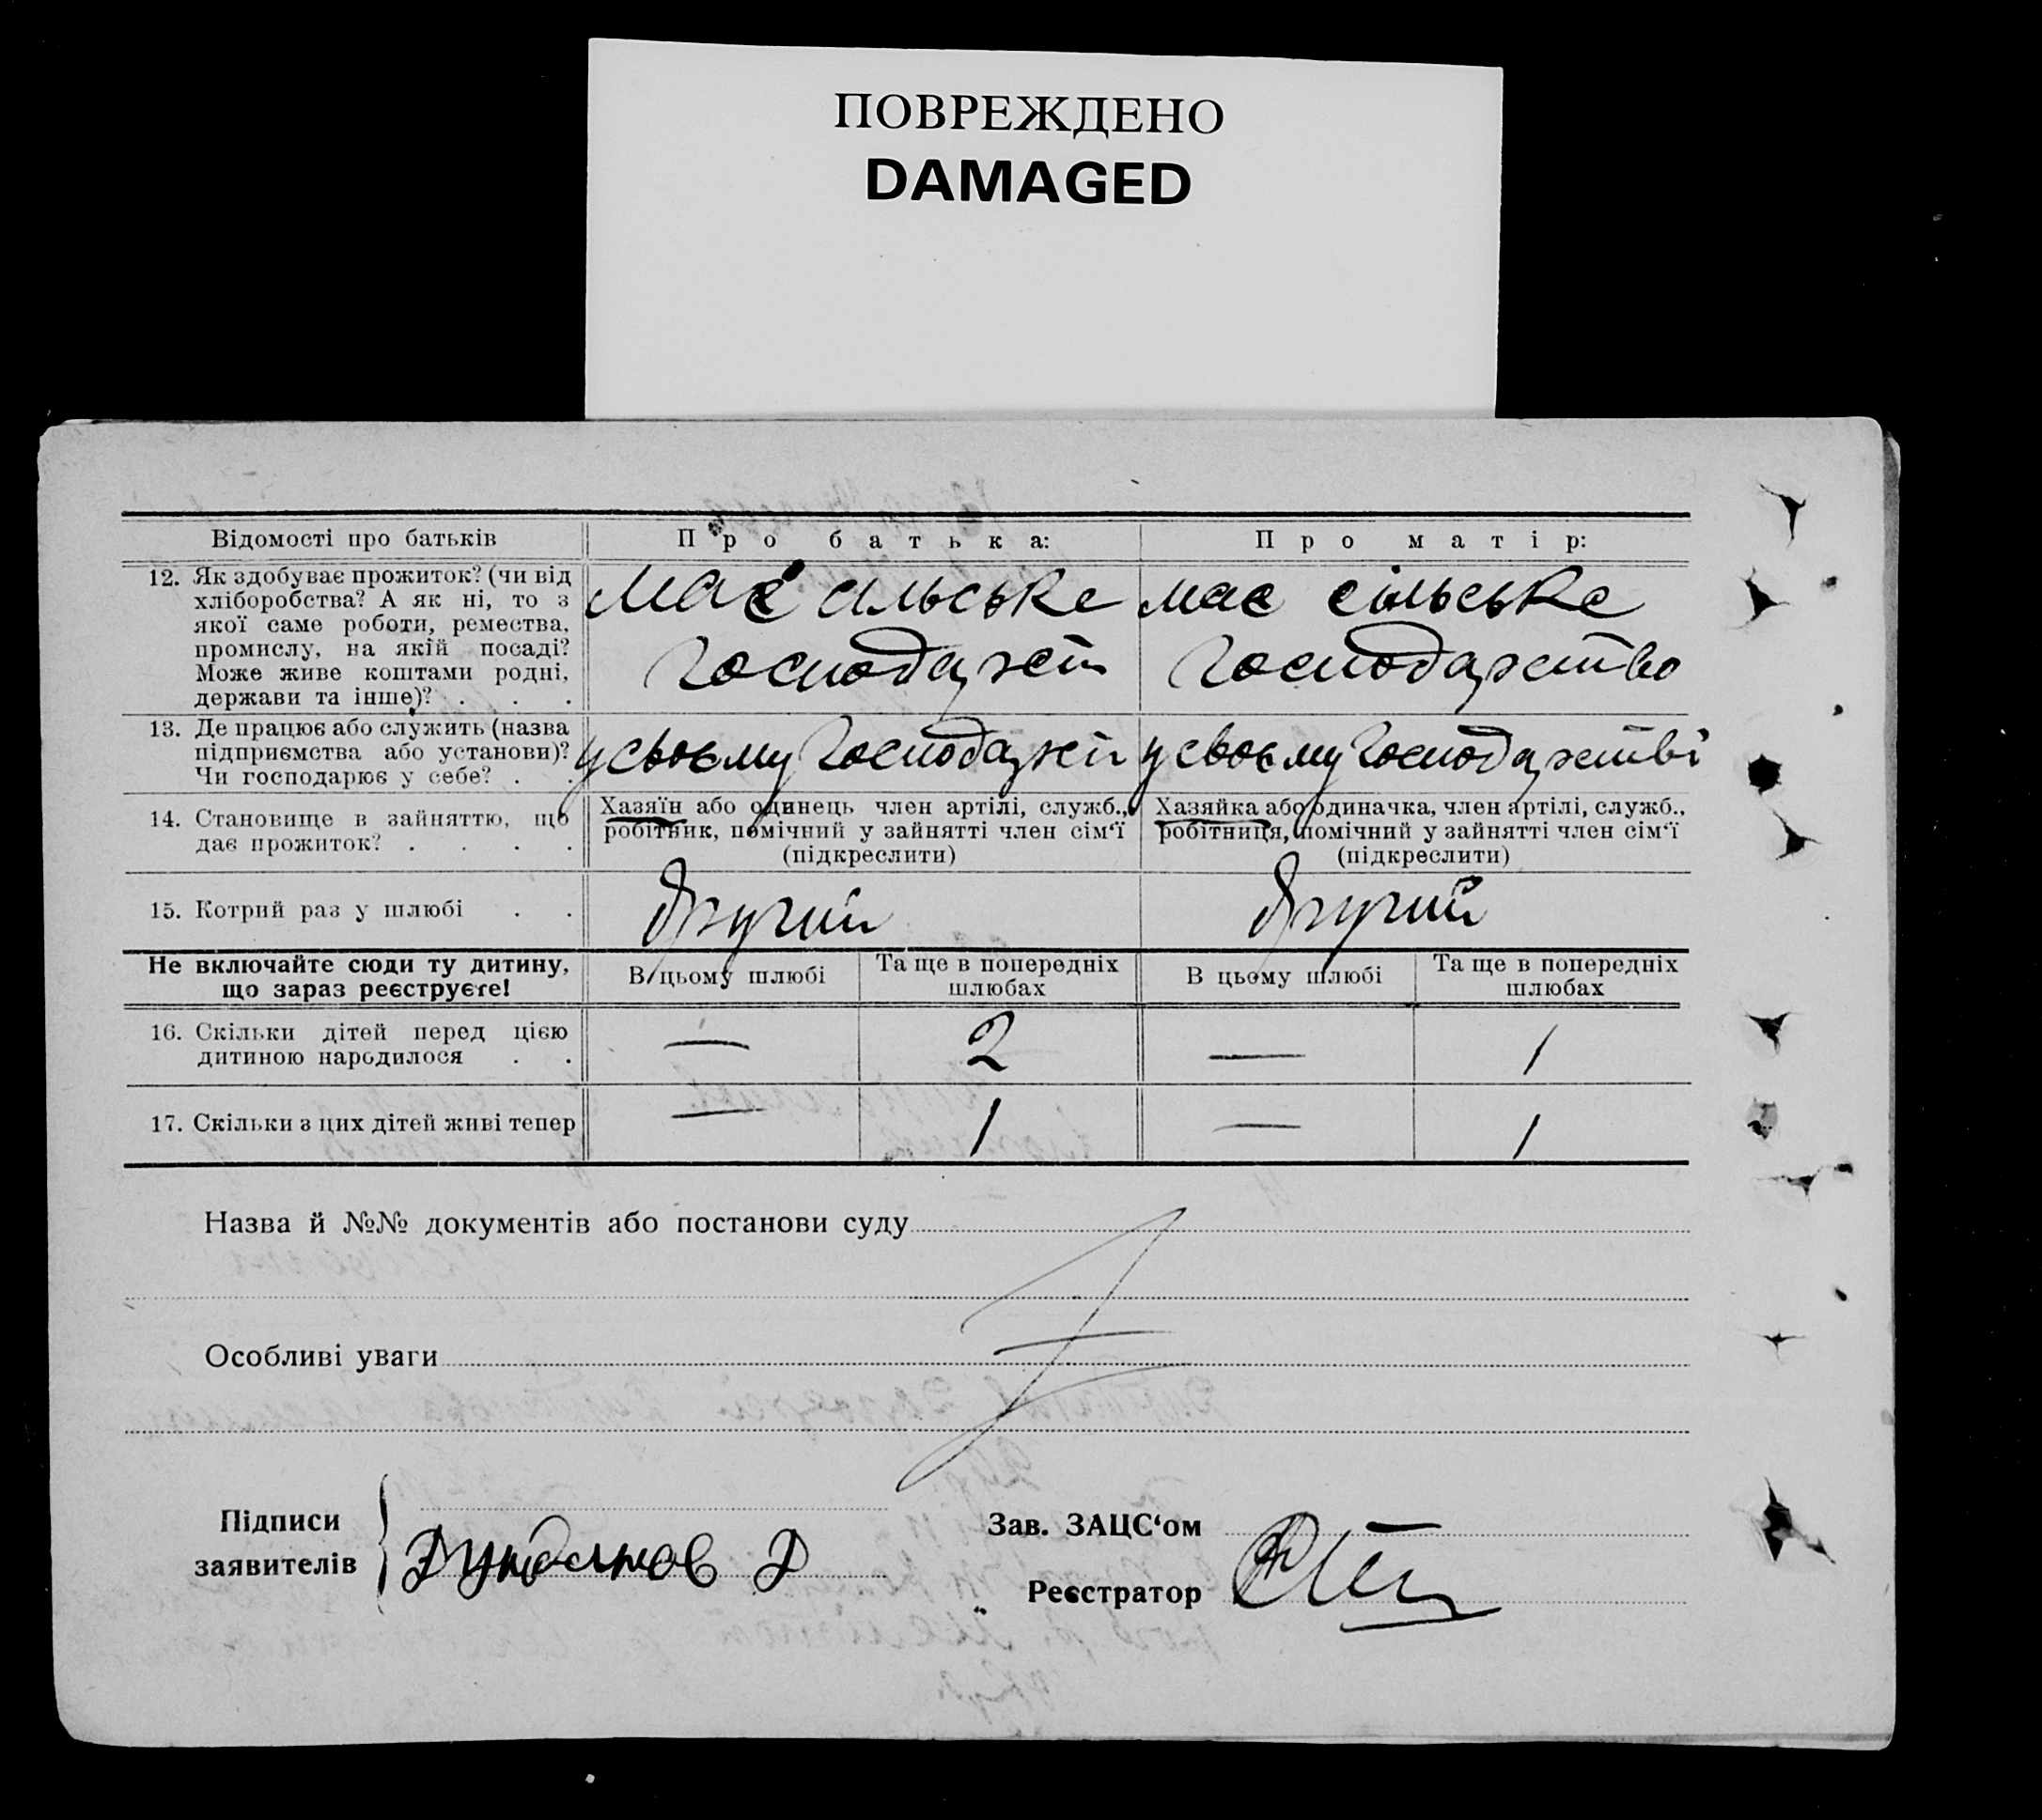 ПОВРЕЖДЕНО
DAMAGED
Відомості про батьків
Про батька:
Про матір:
12. Як здобуває прожиток? (чи від
хліборобства? А як ні, то з
якої саме роботи, ремества,
промислу, на якій посаді?
Може живе коштами родні,
держави та інше)? . . .
має сільське
господарст
має сільське
господарство
13. Де працює або служить (назва
підприємства або установи)?
Чи господарює у себе? . .
у своєму господарст
у своєму господарстві
14. Становище в зайняттю, що
дає прожиток? . . . .
Хазяїн або одинець член артілі, служб.,
робітник, помічний у зайнятті член сім'ї
(підкреслити)
Хазяйка або одиначка, член артілі, служб.,
робітниця, помічний у зайнятті член сім'ї
(підкреслити)
15. Котрий раз у шлюбі . .
другий
другий
Не включайте сюди ту дитину,
що зараз реєструєте!
В цьому шлюбі
Та ще в попередніх
шлюбах
В цьому шлюбі
Та ще в попередніх
шлюбах
16. Скільки дітей перед цією
дитиною народилося . .
— 2 — 1
17. Скільки з цих дітей живі тепер
— 1 — 1
Назва й №№ документів або постанови суду
Особливі уваги
Підписи
заявителів
Зав. ЗАЦС‘ом
Реєстратор